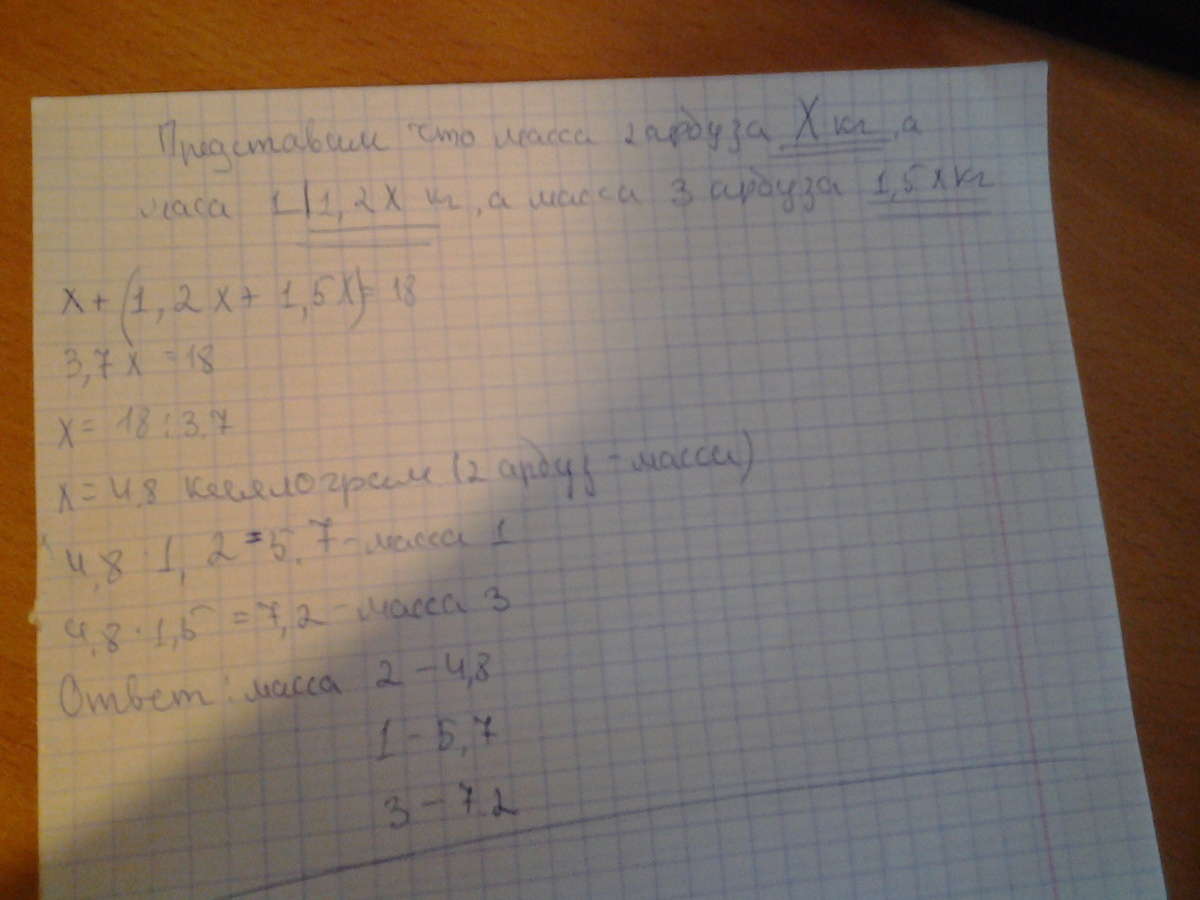 Представим что масса 2 арбуза X кг, а
маса 1 1,2X кг, а масса 3 арбуза 1,5X кг
X + (1,2X + 1,5X) = 18
3,7X = 18
X = 18 : 3.7
X = 4.8 киллограм (2 арбуз - масса)
4,8 · 1,2 = 5,7 - масса 1
4,8 · 1,5 = 7,2 - масса 3
Ответ: масса 2 - 4,8
1 - 5,7
3 - 7.2